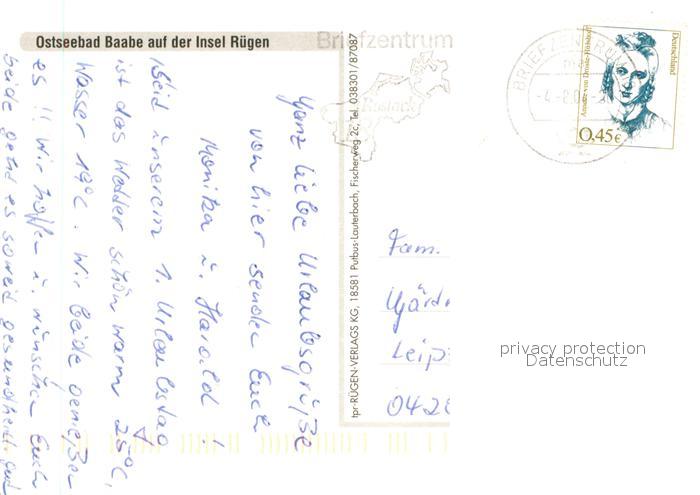 Ostseebad Baabe auf der Insel Rügen
Ganz liebe Urlaubsgrüße
von hier senden Euch
Monika u. Harald !
Seid unserem 1. Urlaubstag
ist das Wetter schön warm 25°C,
Wasser 19°C. Wir beide genießen
es !! Wir hoffen u. wünschen Euch
beide geht es soweit gesundheitl. gut
tpr-RÜGEN-VERLAGS KG, 18581 Putbus-Lauterbach, Fischerweg 2c, Tel. 038301/87087
Briefzentrum
Rostock
BRIEFZENTRUM
Deutschland
Annette von Droste-Hülshoff
0,45€
Fam.
Leip
04-28
privacy protection
Datenschutz